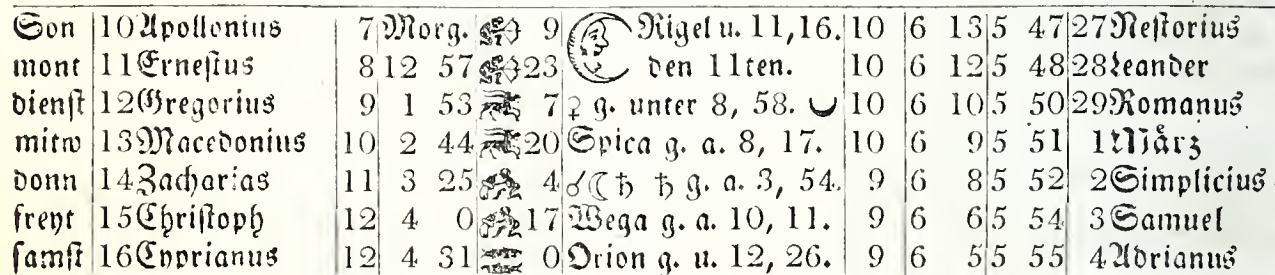 Son 10 Apollonius 7 Morg. 9 Rigel u. 11,16. 10 6 13 5 47 27 Nestorius
mont 11 Ernestus 8 12 57 23 den 11ten. 10 6 12 5 48 28 Leander
dienst 12 Gregorius 9 1 53 7 ♀ g. unter 8, 58. 10 6 10 5 50 29 Romanus
mitw 13 Macedonius 10 2 44 20 Spica g. a. 8, 17. 10 6 9 5 51 1 März
donn 14 Zacharias 11 3 25 4 ☌☾♄ ♄ g. a. 3, 54. 9 6 8 5 52 2 Simplicius
freyt 15 Christoph 12 4 0 17 Wega g. a. 10, 11. 9 6 6 5 54 3 Samuel
samst 16 Cyprianus 12 4 31 0 Orion g. u. 12, 26. 9 6 5 5 55 4 Adrianus